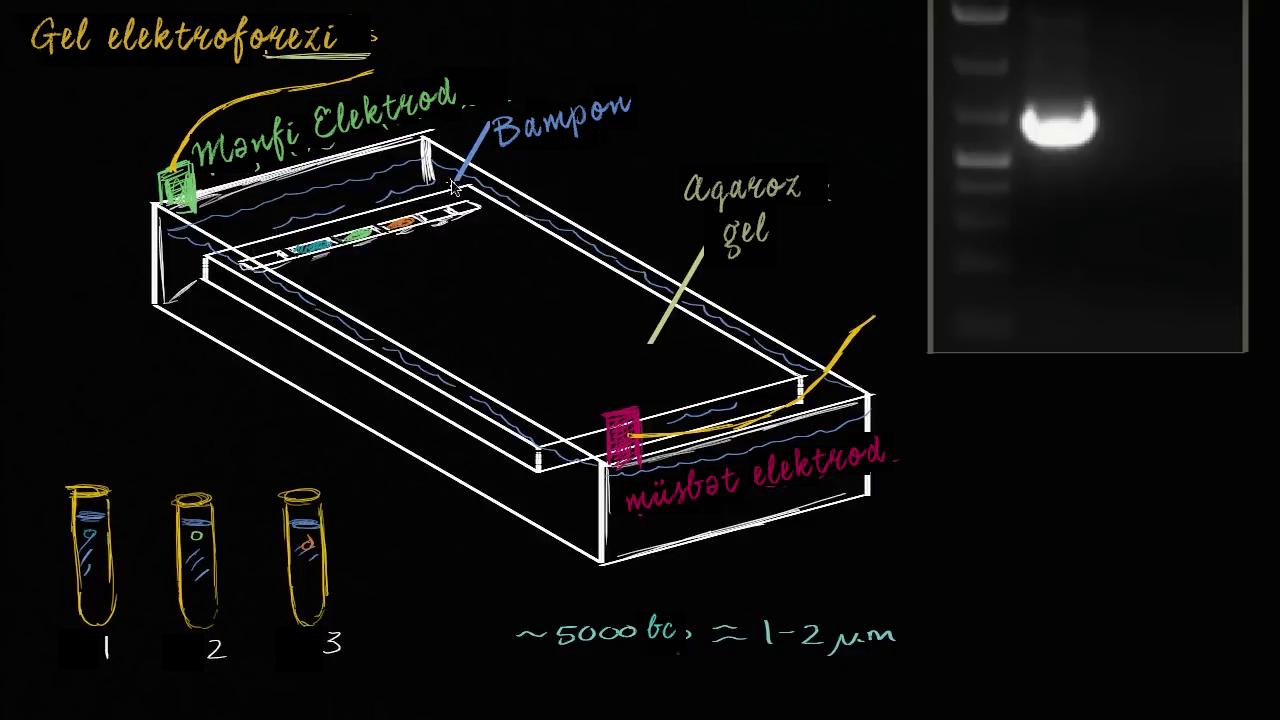 Gel elektroforezi
Mənfi Elektrod
Bampon
Agaroz
gel
müsbət elektrod
1
2
3
~5000 bc, ≈ 1-2 µm